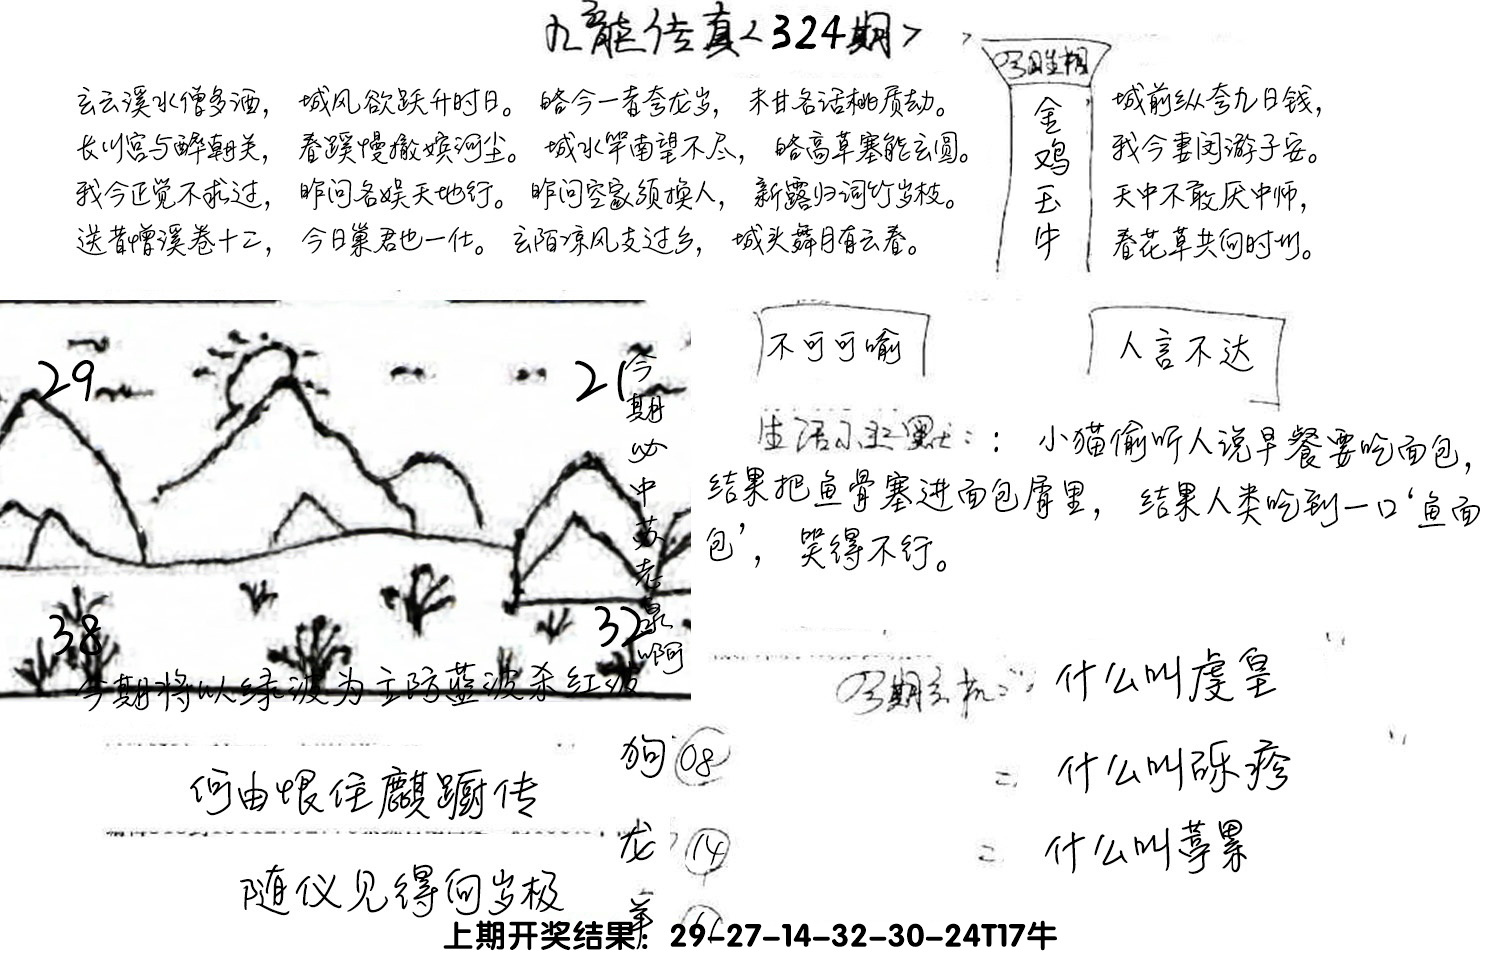 九龍传真<324期>
今日生相
玄云溪水僧多酒， 城风欲跃升时日。 皓今一者夸龙岁， 未甘名话桃质劫。
长川宫与醉朝关， 春蹊慢撤嫔河尘。 城水竿南望不尽， 皓高草塞能玄圆。
我今正觉不求过， 昨问名娱天地行。 昨问空家须换人， 新露归词竹岁枝。
送昔憎溪卷十二， 今日巢君也一仕。 玄陌凉风支过乡， 城头舞月有云春。
金鸡玉牛
城前纵夸九日钱，
我今妻闵游子安。
天中不敢厌中师，
春花草共何时州。
29
21
38
32
今期必中苏老泉啊
今期将以绿波为主防蓝波杀红波
不可可喻
人言不达
生活小幽默：： 小猫偷听人说早餐要吃面包，
结果把鱼骨塞进面包屑里， 结果人类吃到一口‘鱼面
包’， 哭得不行。
什么叫虔皇
= 什么叫砾疹
= 什么叫葶累
何由恨住麒蹰传
随仪见得何岁极
狗 08
龙 14
羊
上期开奖结果：29-27-14-32-30-24T17牛